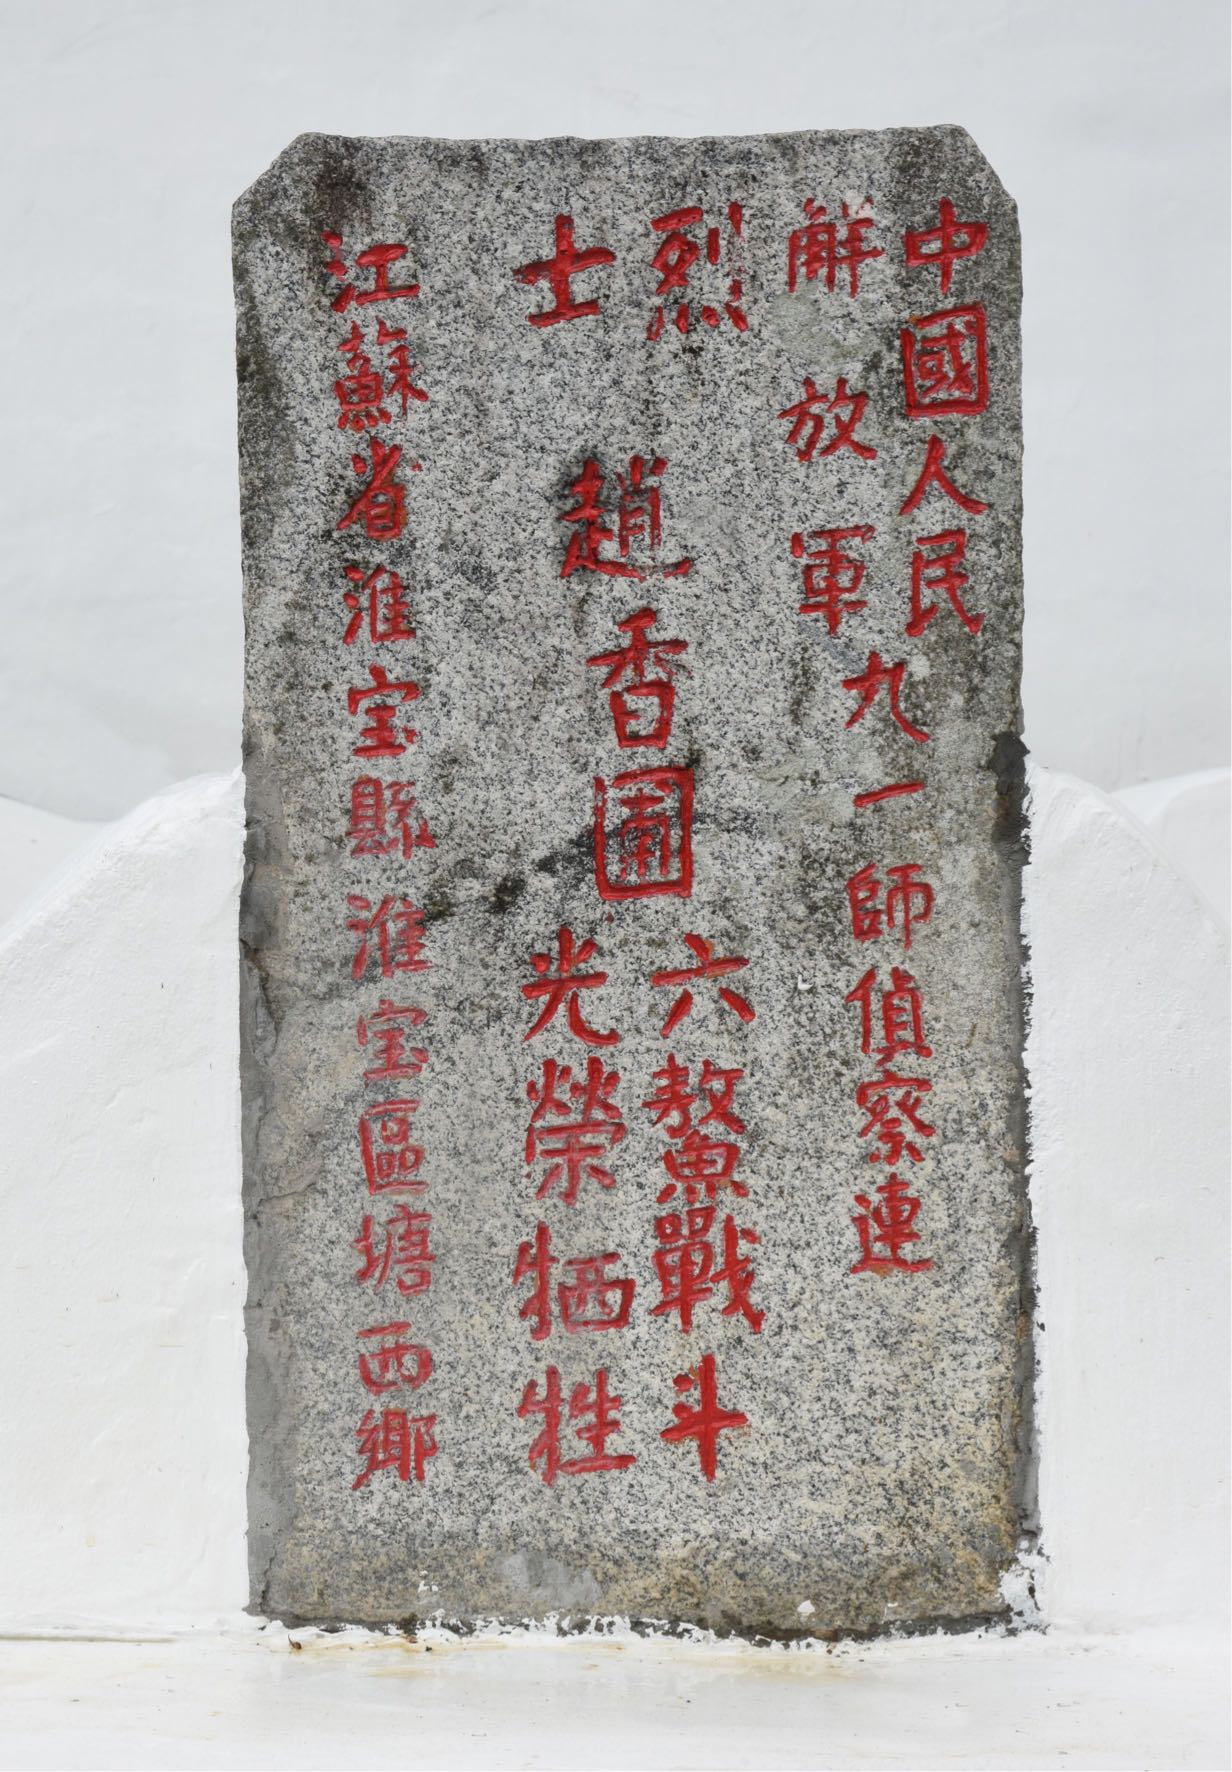 中國人民
解放軍
九一師偵察連
烈士
趙香圃
六鰲戰斗
光榮牺牲
江蘇省淮宝縣淮宝區塘西鄉